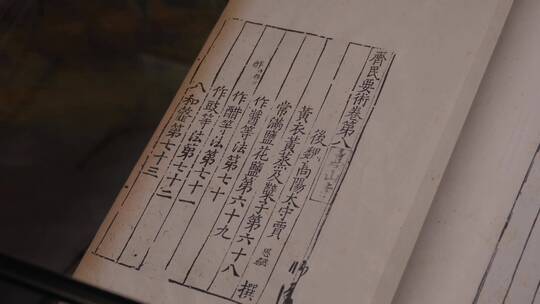 齊民要術卷第八
後魏高陽太守賈 思勰 撰
黃衣黃蒸及糵子第六十八
常滿鹽花鹽第六十九
作醬等法第七十
作酢等法第七十一
作豉等法第七十二
八和虀第七十三